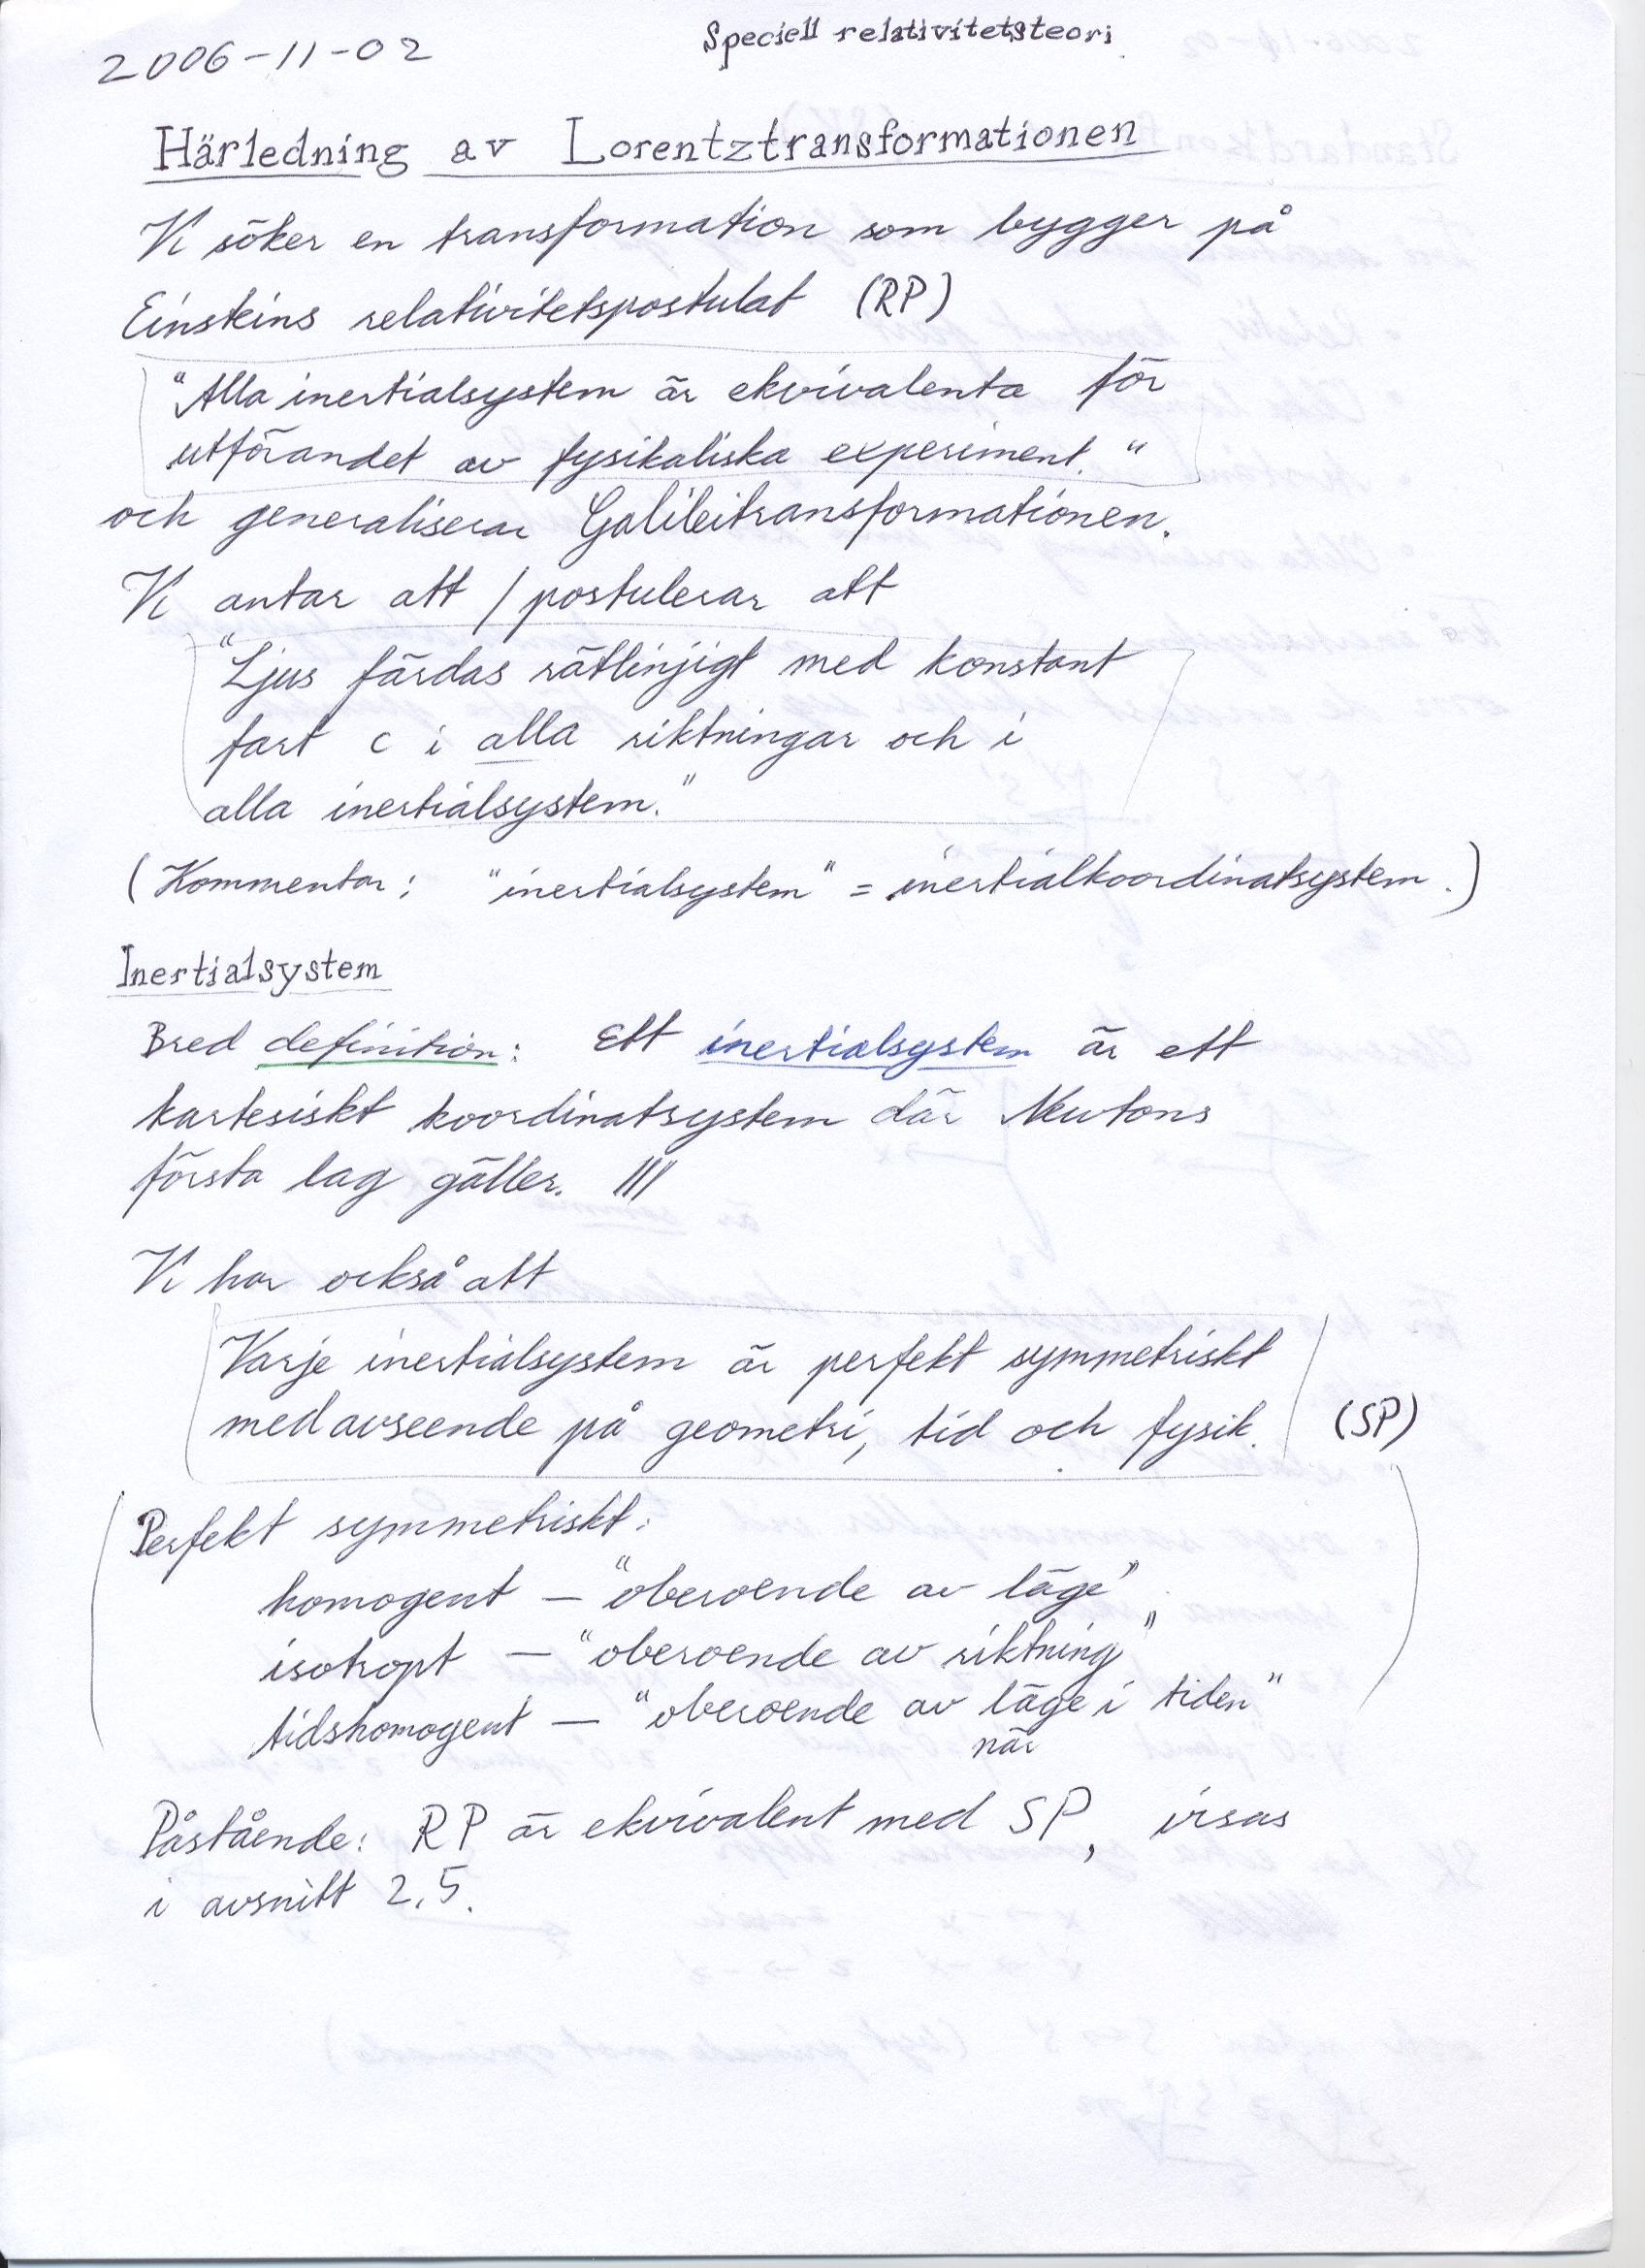 2006-11-02
Speciell relativitetsteori
Härledning av Lorentztransformationen
Vi söker en transformation som bygger på
Einsteins relativitetspostulat (RP)
"Alla inertialsystem är ekvivalenta för
utförandet av fysikaliska experiment."
och generaliserar Galileitransformationen.
Vi antar att / postulerar att
"Ljus färdas rätlinjigt med konstant
fart c i alla riktningar och i
alla inertialsystem."
(Kommentar: "inertialsystem" = inertialkoordinatsystem.)
Inertialsystem
Bred definition: Ett inertialsystem är ett
kartesiskt koordinatsystem där Newtons
första lag gäller. ///
Vi har också att
Varje inertialsystem är perfekt symmetriskt
med avseende på geometri, tid och fysik. (SP)
Perfekt symmetriskt:
homogent – "oberoende av läge"
isotropt – "oberoende av riktning"
tidshomogent – "oberoende av läge i tiden"
när
Påstående: RP är ekvivalent med SP, visas
i avsnitt 2.5.